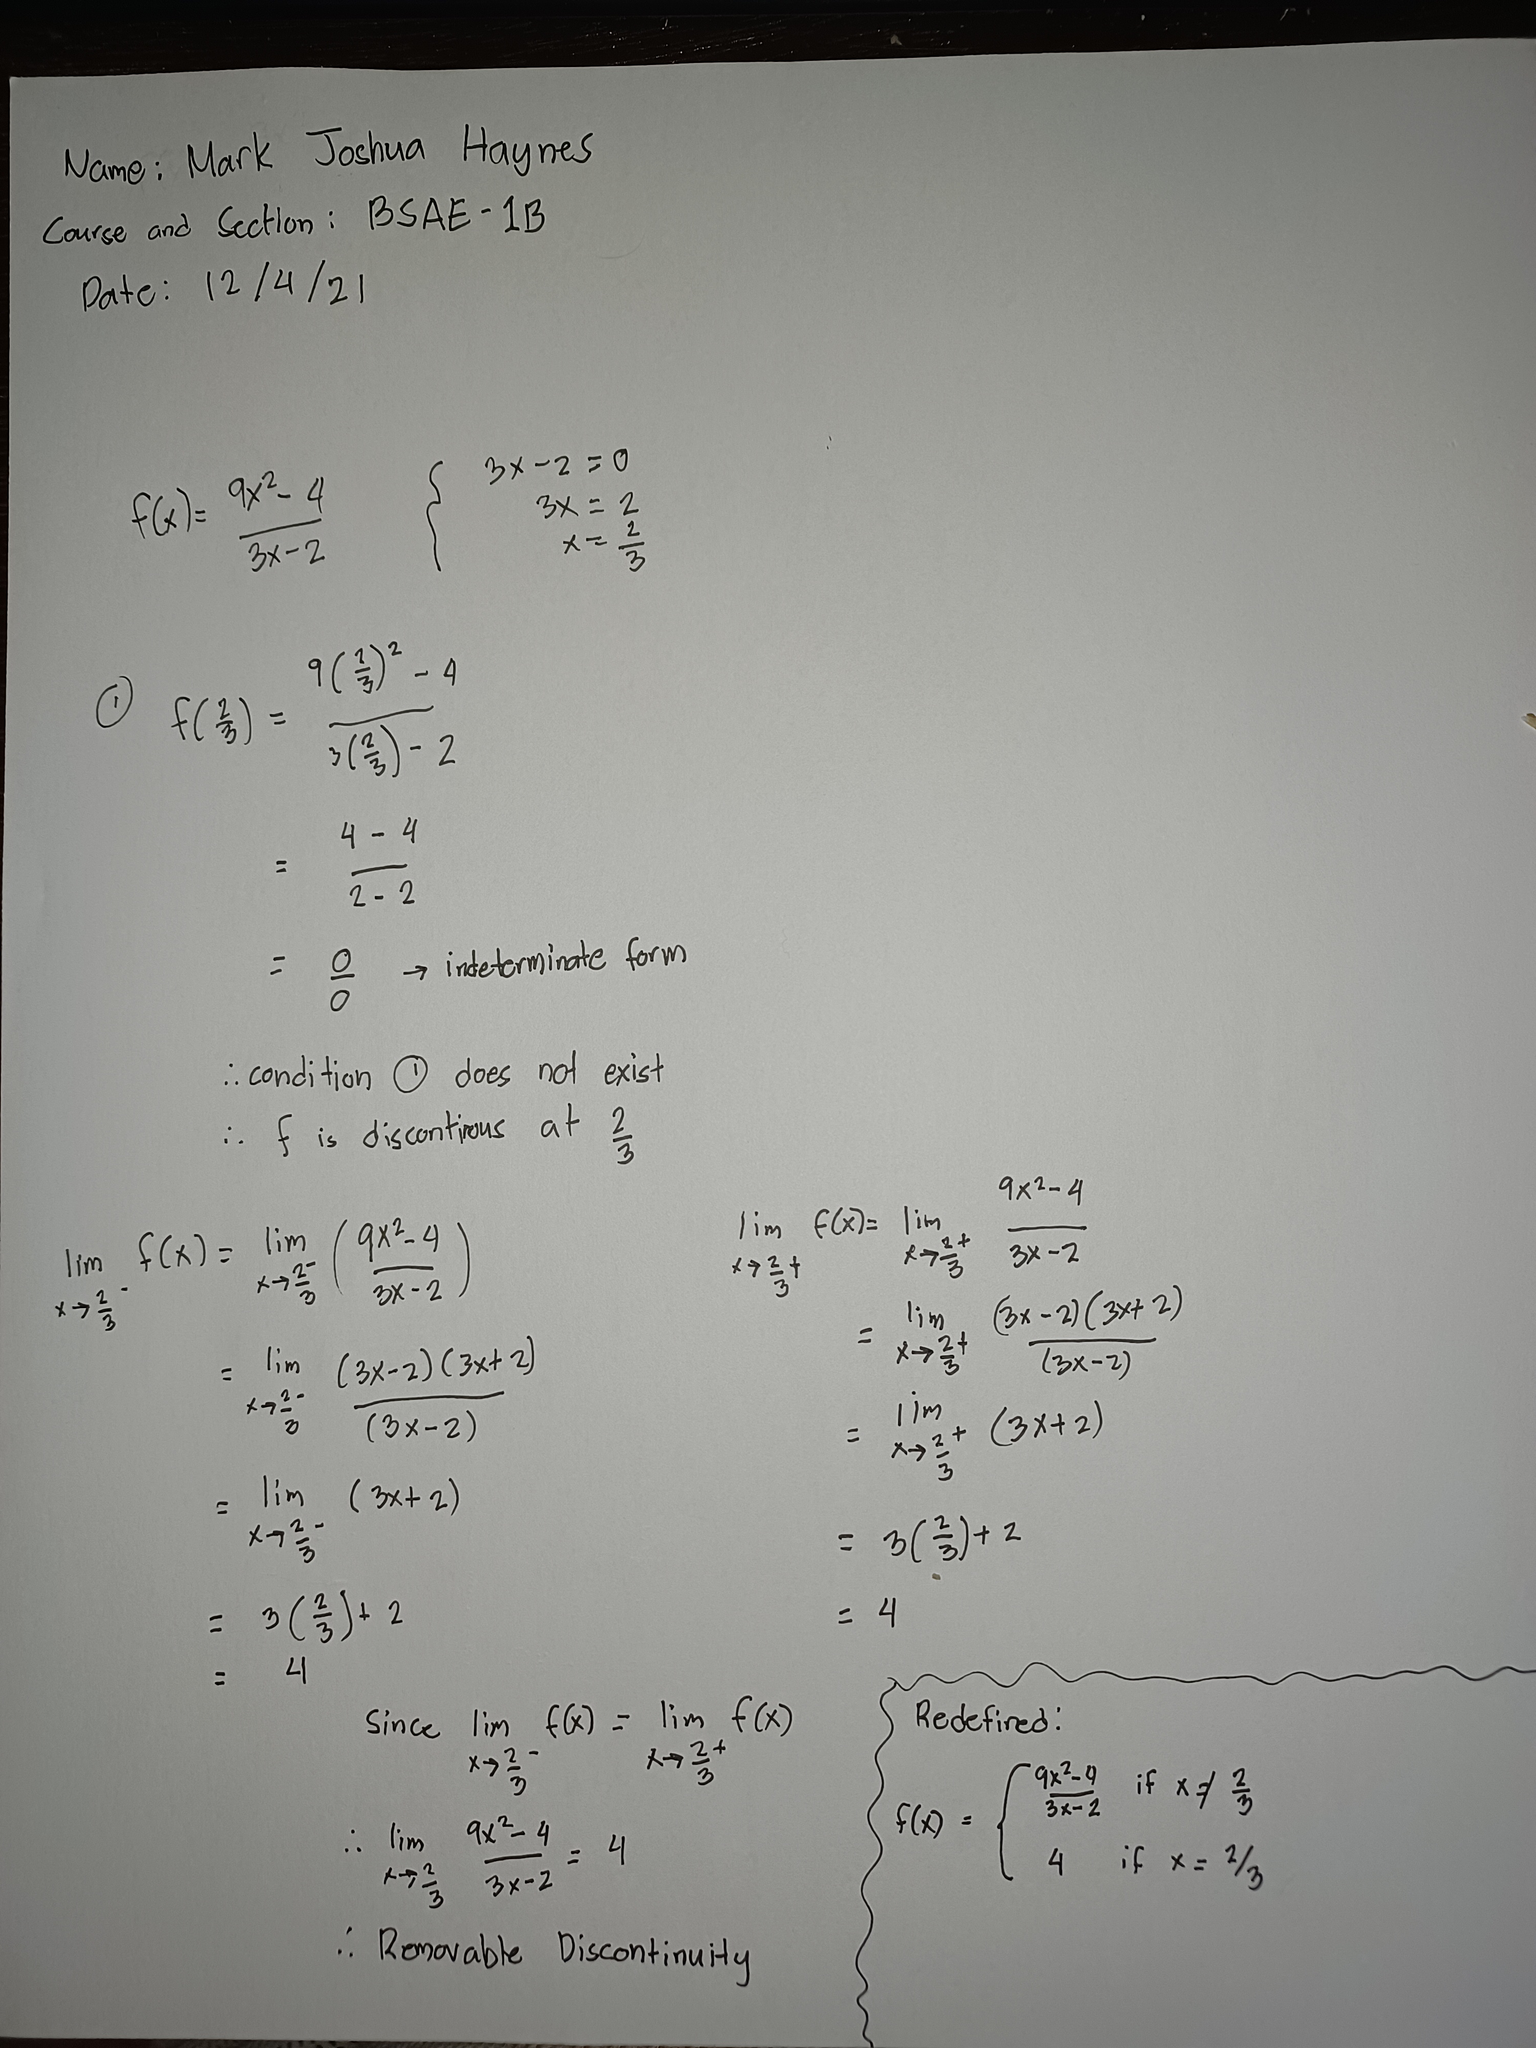 Name: Mark Joshua Haynes
Course and Section: BSAE-1B
Date: 12/4/21
f(x)= 9x²-4 / 3x-2 { 3x-2=0
3x=2
x=2/3
① f(2/3) = 9(2/3)²-4 / 3(2/3)-2
= 4-4 / 2-2
= 0/0 → indeterminate form
∴ condition ① does not exist
∴ f is discontinous at 2/3
lim x→2/3⁻ f(x) = lim x→2/3⁻ (9x²-4 / 3x-2)
= lim x→2/3⁻ (3x-2)(3x+2) / (3x-2)
= lim x→2/3⁻ (3x+2)
= 3(2/3)+2
= 4
lim x→2/3+ f(x)= lim x→2/3+ 9x²-4 / 3x-2
= lim x→2/3+ (3x-2)(3x+2) / (3x-2)
= lim x→2/3+ (3x+2)
= 3(2/3)+2
= 4
Since lim x→2/3⁻ f(x) = lim x→2/3+ f(x)
∴ lim x→2/3 9x²-4 / 3x-2 = 4
∴ Removable Discontinuity
Redefined:
f(x) = { 9x²-4 / 3x-2 if x≠2/3
4 if x=2/3